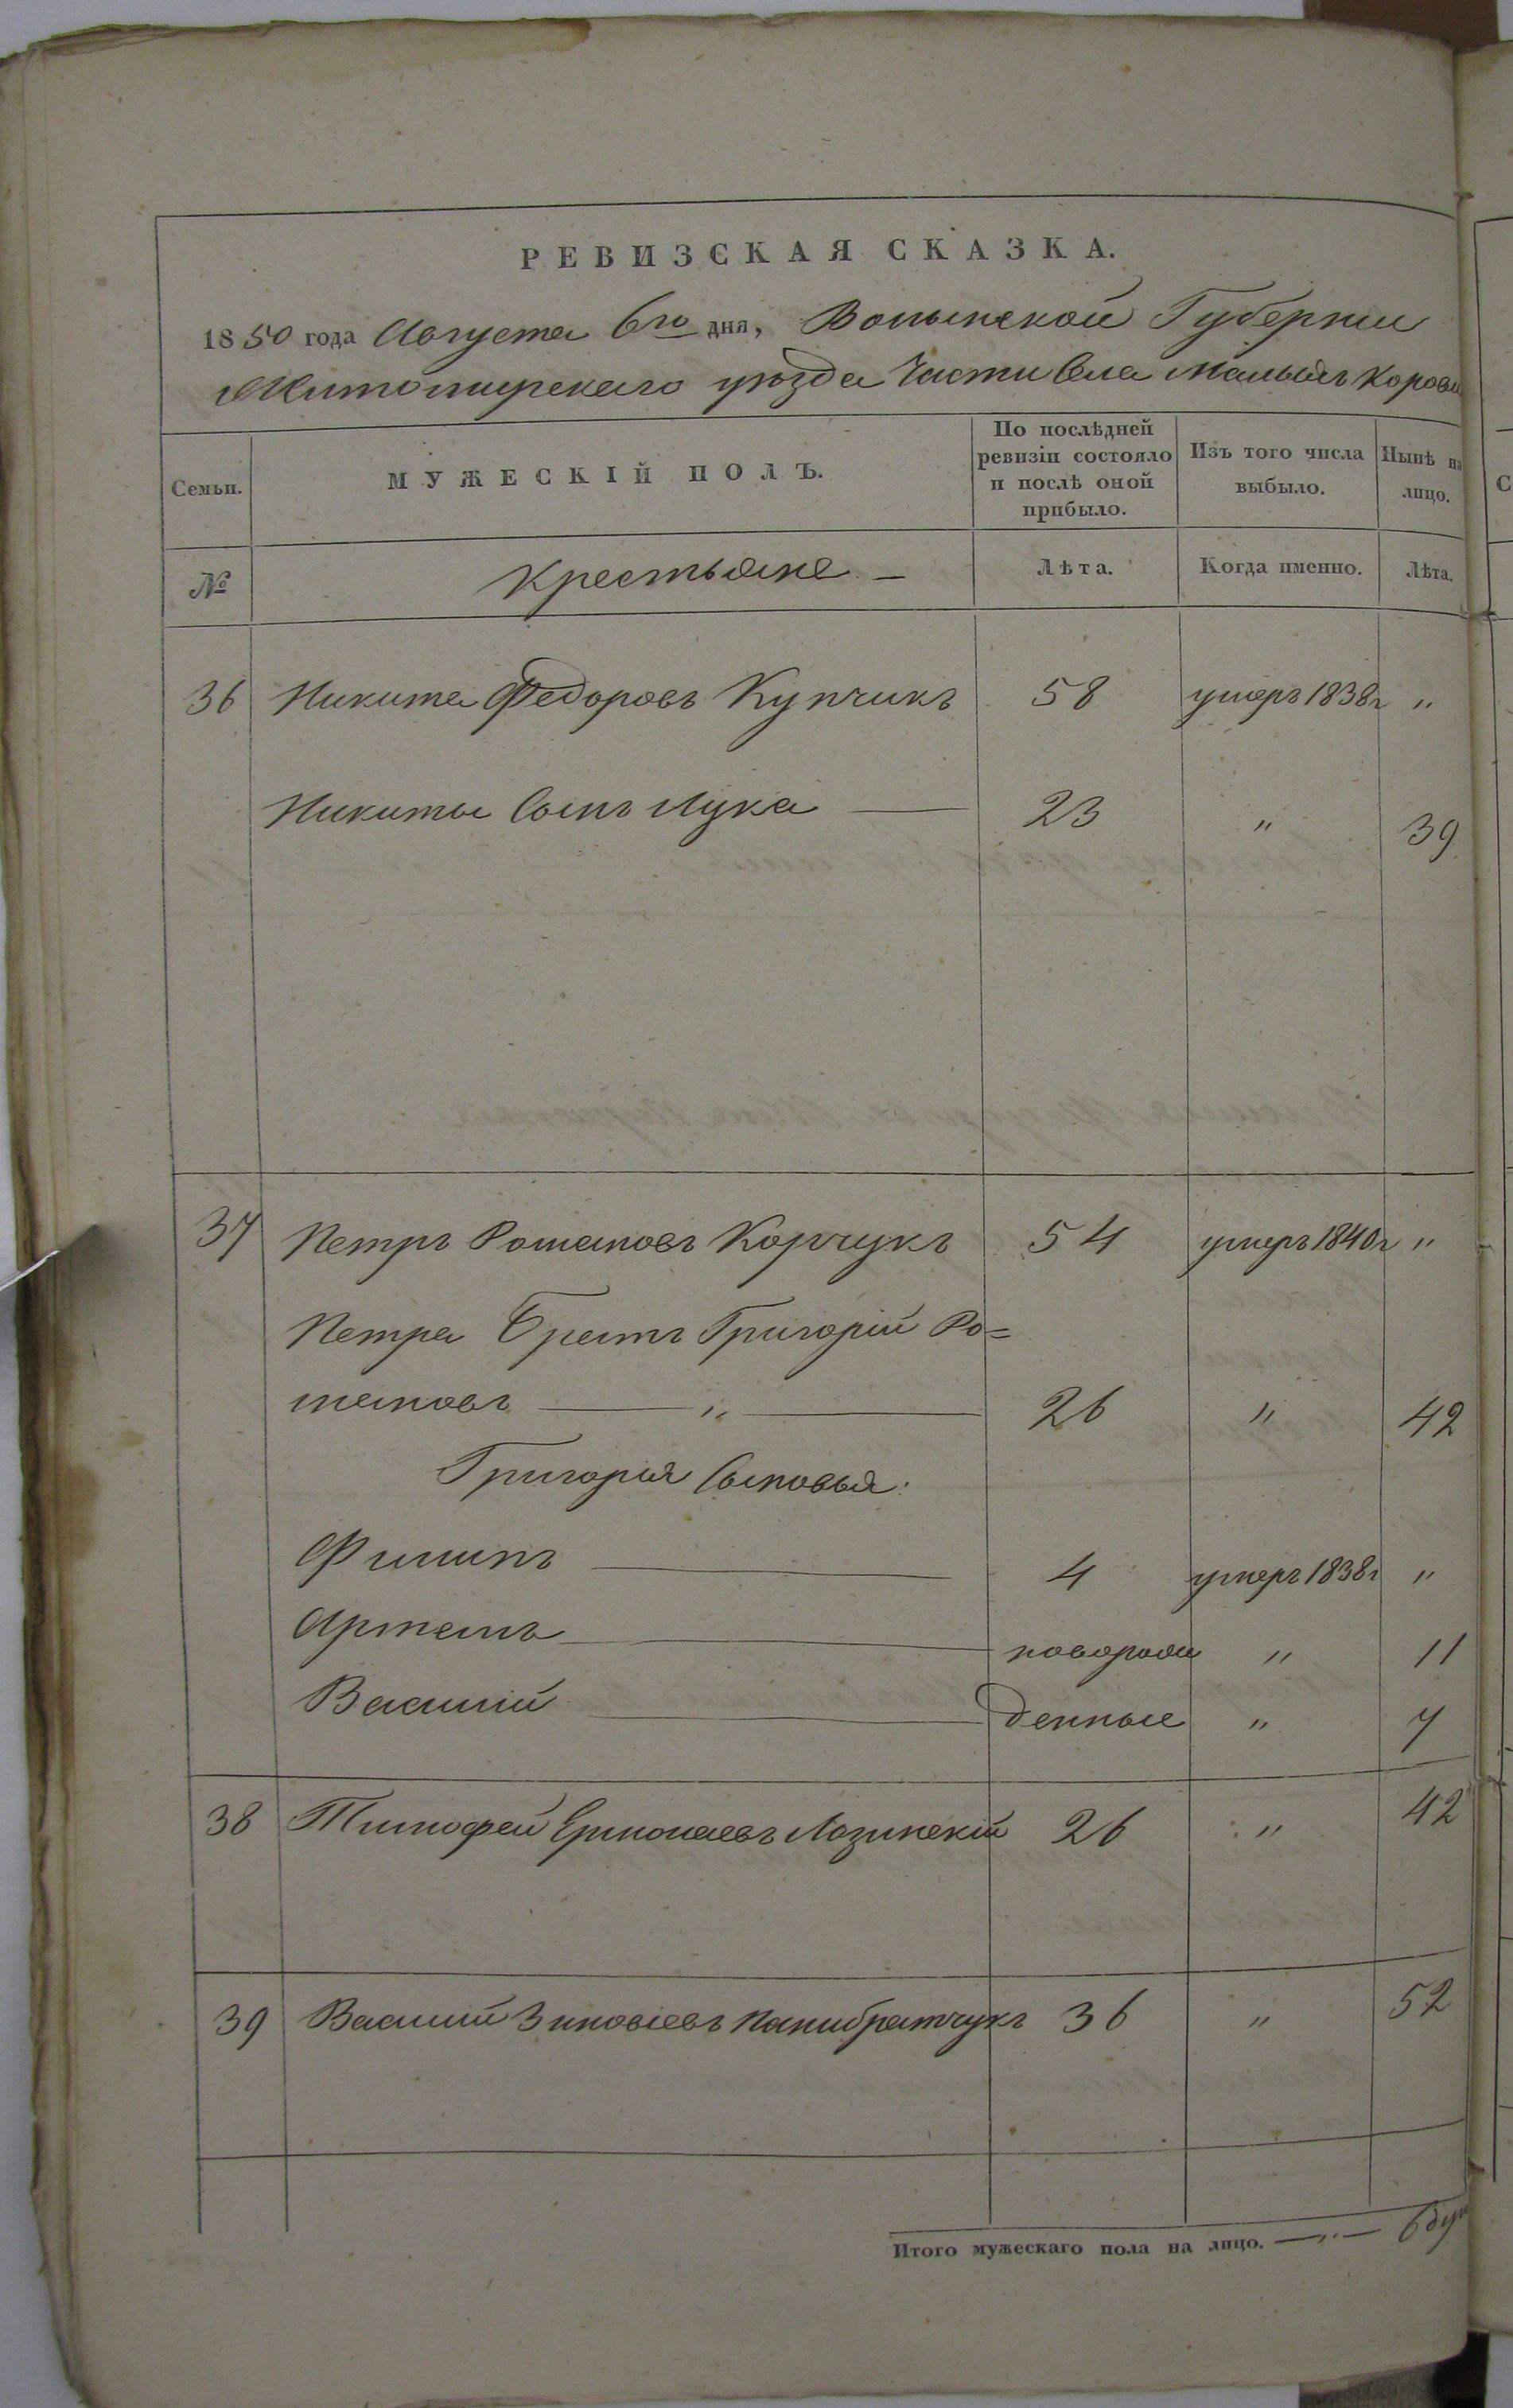 РЕВИЗСКАЯ СКАЗКА.
1850 года Августа 6го дня, Волынской Губернии
Житомирского уѣзда Части Села Малыхъ Корови
Семьи.
МУЖЕСКІЙ ПОЛЪ.
По послѣдней ревизіи состояло и послѣ оной прибыло.
Изъ того числа выбыло.
Нынѣ на лицо.
№
Крестьяне. —
Лѣта.
Когда именно.
Лѣта.
36 Никита Федоровъ Купчикъ 58 умеръ 1838г "
Никиты Сынъ Лука — 23 " 39
37 Петръ Романовъ Корчукъ 54 умеръ 1840г "
Петра Братъ Григорій Ро=
мановъ — " — 26 " 42
Григорія Сыновья.
Филипъ — 4 умеръ 1838г "
Артемъ — новорож " 11
Василій — денные " 7
38 Тимофей Ермолаевъ Лозинскій 26 " 42
39 Василій Зиновіевъ Панибратчукъ 36 " 52
Итого мужескаго пола на лицо. — " — 6 душ